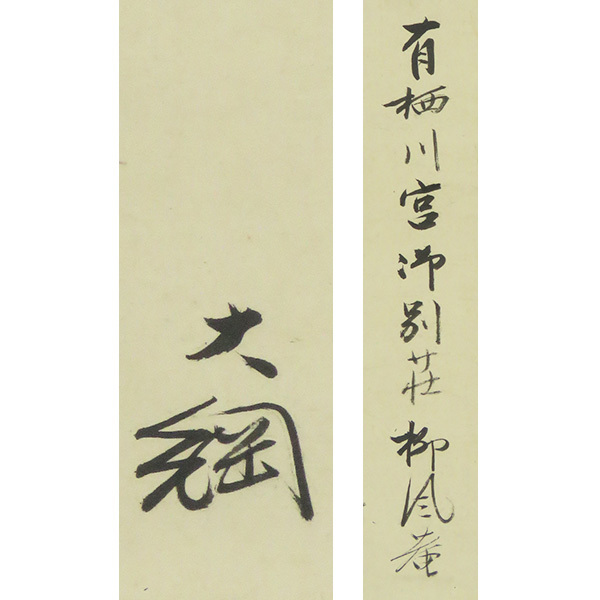 有栖川宮御別荘柳風菴
大綱